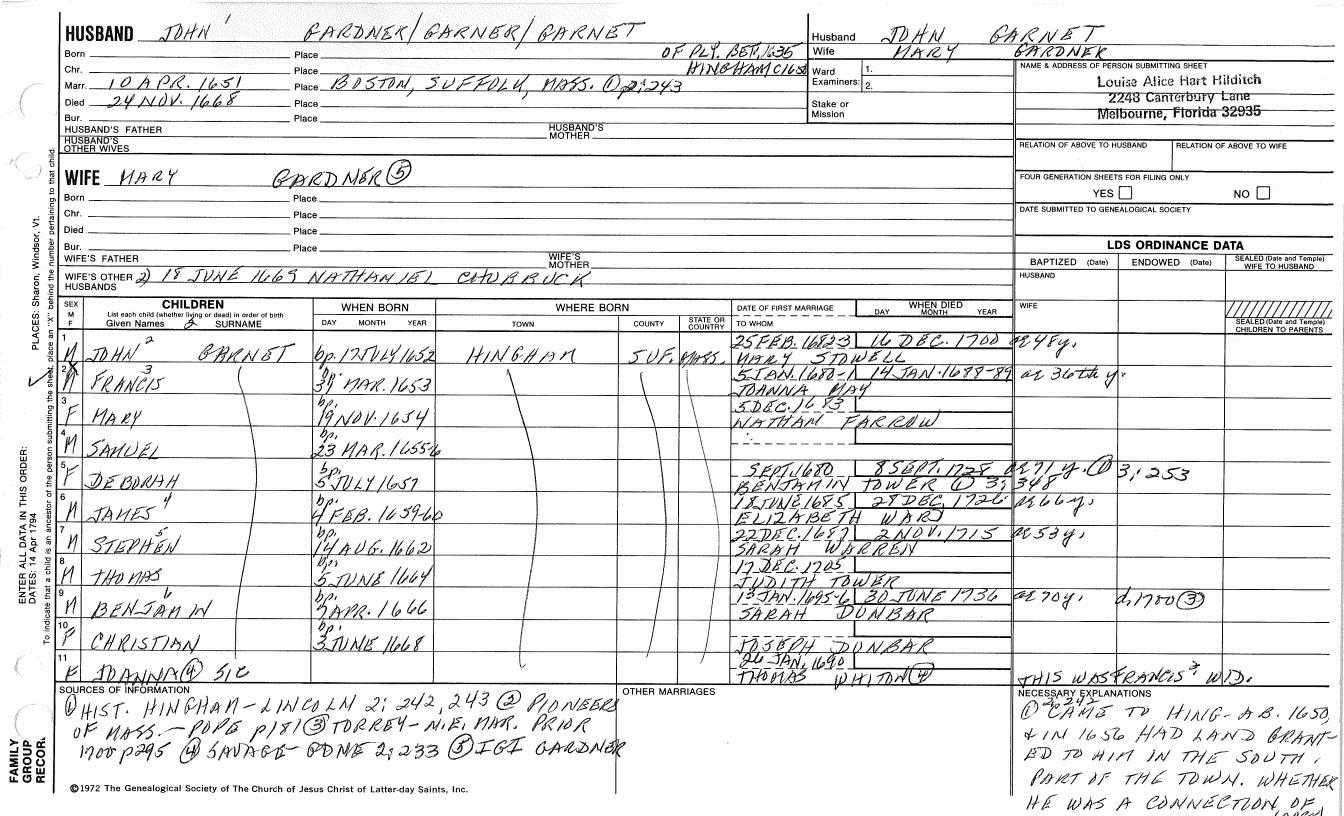 HUSBAND JOHN 1 GARDNER/GARNER/GARNET
Born Place OF PLY. BET. 1635
Chr. Place HINGHAM C1650
Marr. 10 APR. 1651 Place BOSTON, SUFFOLK, MASS. ① 2:243
Died 24 NOV. 1668 Place
Bur. Place
HUSBAND'S FATHER HUSBAND'S MOTHER
HUSBAND'S OTHER WIVES
Husband JOHN GARNET
Wife MARY GARDNER
Ward Examiners: 1. 2.
Stake or Mission
NAME & ADDRESS OF PERSON SUBMITTING SHEET
Louise Alice Hart Hilditch
2248 Canterbury Lane
Melbourne, Florida 32935
RELATION OF ABOVE TO HUSBAND RELATION OF ABOVE TO WIFE
FOUR GENERATION SHEETS FOR FILING ONLY
YES NO
DATE SUBMITTED TO GENEALOGICAL SOCIETY
WIFE MARY GARDNER ⑤
Born Place
Chr. Place
Died Place
Bur. Place
WIFE'S FATHER WIFE'S MOTHER
WIFE'S OTHER HUSBANDS 2) 18 JUNE 1669 NATHANIEL CHUBBUCK
LDS ORDINANCE DATA
BAPTIZED (Date) ENDOWED (Date) SEALED (Date and Temple) WIFE TO HUSBAND
HUSBAND
WIFE
SEALED (Date and Temple) CHILDREN TO PARENTS
SEX M F
CHILDREN
List each child (whether living or dead) in order of birth
Given Names SURNAME
WHEN BORN
DAY MONTH YEAR
WHERE BORN
TOWN COUNTY STATE OR COUNTRY
DATE OF FIRST MARRIAGE
TO WHOM
WHEN DIED
DAY MONTH YEAR
1 M JOHN 2 GARNET bp. 17 JULY 1652 HINGHAM SUF. MASS. 25 FEB. 1682-3 16 DEC. 1700 ae 48 y.
MARY STOWELL
2 X M FRANCIS 3 bp. MAR. 1653 5 JAN. 1680-1 14 JAN. 1688-89 ae 36th y.
JOANNA MAY
3 F MARY bp. 19 NOV. 1654 5 DEC. 1683
NATHAM FARROW
4 M SAMUEL bp. 23 MAR. 1655-6
5 F DEBORAH bp. 5 JULY 1657 SEPT. 1680 8 SEPT. 1728 ae 71 y. ① 3:253
BENJAMIN TOWER ① 3:348
6 M JAMES 4 bp. 4 FEB. 1659-60 18 JUNE 1685 28 DEC. 1726 ae 66 y.
ELIZABETH WARD
7 M STEPHEN 5 bp. 14 AUG. 1662 22 DEC. 1687 2 NOV. 1715 ae 53 y.
SARAH WARREN
8 M THOMAS bp. 5 JUNE 1664 17 DEC. 1705
JUDITH TOWER
9 M BENJAMIN 6 bp. APR. 1666 13 JAN. 1695-6 30 JUNE 1736 ae 70 y. d. 1700 ③
SARAH DUNBAR
10 F CHRISTIAN bp. 3 JUNE 1668
JOSEPH DUNBAR
11 F JOANNA ④ SIC 26 JAN. 1690
THOMAS WHITON ④ THIS WAS FRANCIS' 3 WID.
SOURCES OF INFORMATION
① HIST. HINGHAM-LINCOLN 2: 242, 243 ② PIONEERS
OF MASS.- POPE p181 ③ TORREY-N.E. MAR. PRIOR
1700 p295 ④ SAVAGE-GDNE 2:233 ⑤ IGI GARDNER
OTHER MARRIAGES
NECESSARY EXPLANATIONS
① 2:242 CAME TO HING- AB. 1650,
& IN 1656 HAD LAND GRANT-
ED TO HIM IN THE SOUTH
PART OF THE TOWN. WHETHER
HE WAS A CONNECTION OF
©1972 The Genealogical Society of The Church of Jesus Christ of Latter-day Saints, Inc.
FAMILY GROUP RECOR.
ENTER ALL DATA IN THIS ORDER:
DATES: 14 Apr 1794
PLACES: Sharon, Windsor, Vt.
To indicate that a child is an ancestor of the person submitting the sheet, place an "X" behind the number pertaining to that child.